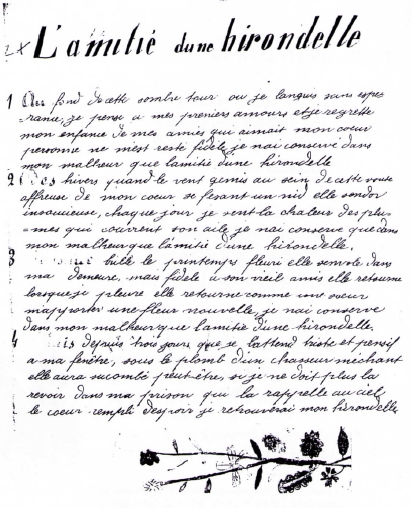 2x L'amitié dune hirondelle
1 Au fond de cette sombre tour ou je languis sans espe
rance, je pense a mes premiers amours et je regrette
mon enfance de mes amies qui aimait mon coeur
personne ne m'est resté fidele, je nai conserve dans
mon malheur que lamitié dune hirondelle
2 Des hivers quand le vent gemis au sein de cette voute
affreuse de mon coeur se fesant un nid elle sendor
insoucieuse, chaque jour je sent la chaleur des plu-
-mes qui couvrent son aile, je nai conserve que dans
mon malheur que lamitié d'une hirondelle.
3 bule le printemps fleuri elle senvole dans
ma demeure, mais fidele a son vieil amis elle retourne
lorsque je pleure elle retourne comme une soeur
m'apporter une fleur nouvelle, je nai conserve
dans mon malheur que lamitié d'une hirondelle.
4 depuis trois jours que je lattend triste et pensif
a ma fenêtre, sous le plomb d'un chasseur méchant
elle aura sucombé peut-être, si je ne doit plus la
revoir dans ma prison qui la rappelle au ciel
le coeur rempli despoir je retrouverai mon hirondelle